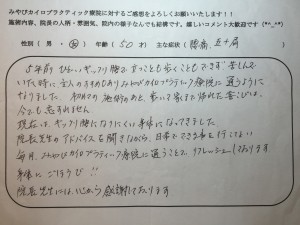 みやびカイロプラクティック療院に対するご感想をよろしくお願いいたします！！
施術内容、院長の人柄・雰囲気、院内の様子などなんでも結構です。嬉しいコメント大歓迎です (*^_^*)
性別（ 男・女 ）年齢（ 50才 ）主な症状（ 腰痛、五十肩 ）
5年前 ひどいギックリ腰で立つことも歩くこともできず 苦しんで
いた時に、主人のすすめもあり みやびカイロプラクティック療院に通うように
なりました。初めての施術のあと、歩いて家まで帰れた喜びは、
今でも忘れません。
現在は、ギックリ腰になりにくい身体になってきました。
院長先生のアドバイスを聞きながら、日常でできる事も行ってない
毎月、みやびカイロプラクティック療院に通うことで、リフレッシュしております
身体に ごほうび!!
院長先生には、心から感謝しております